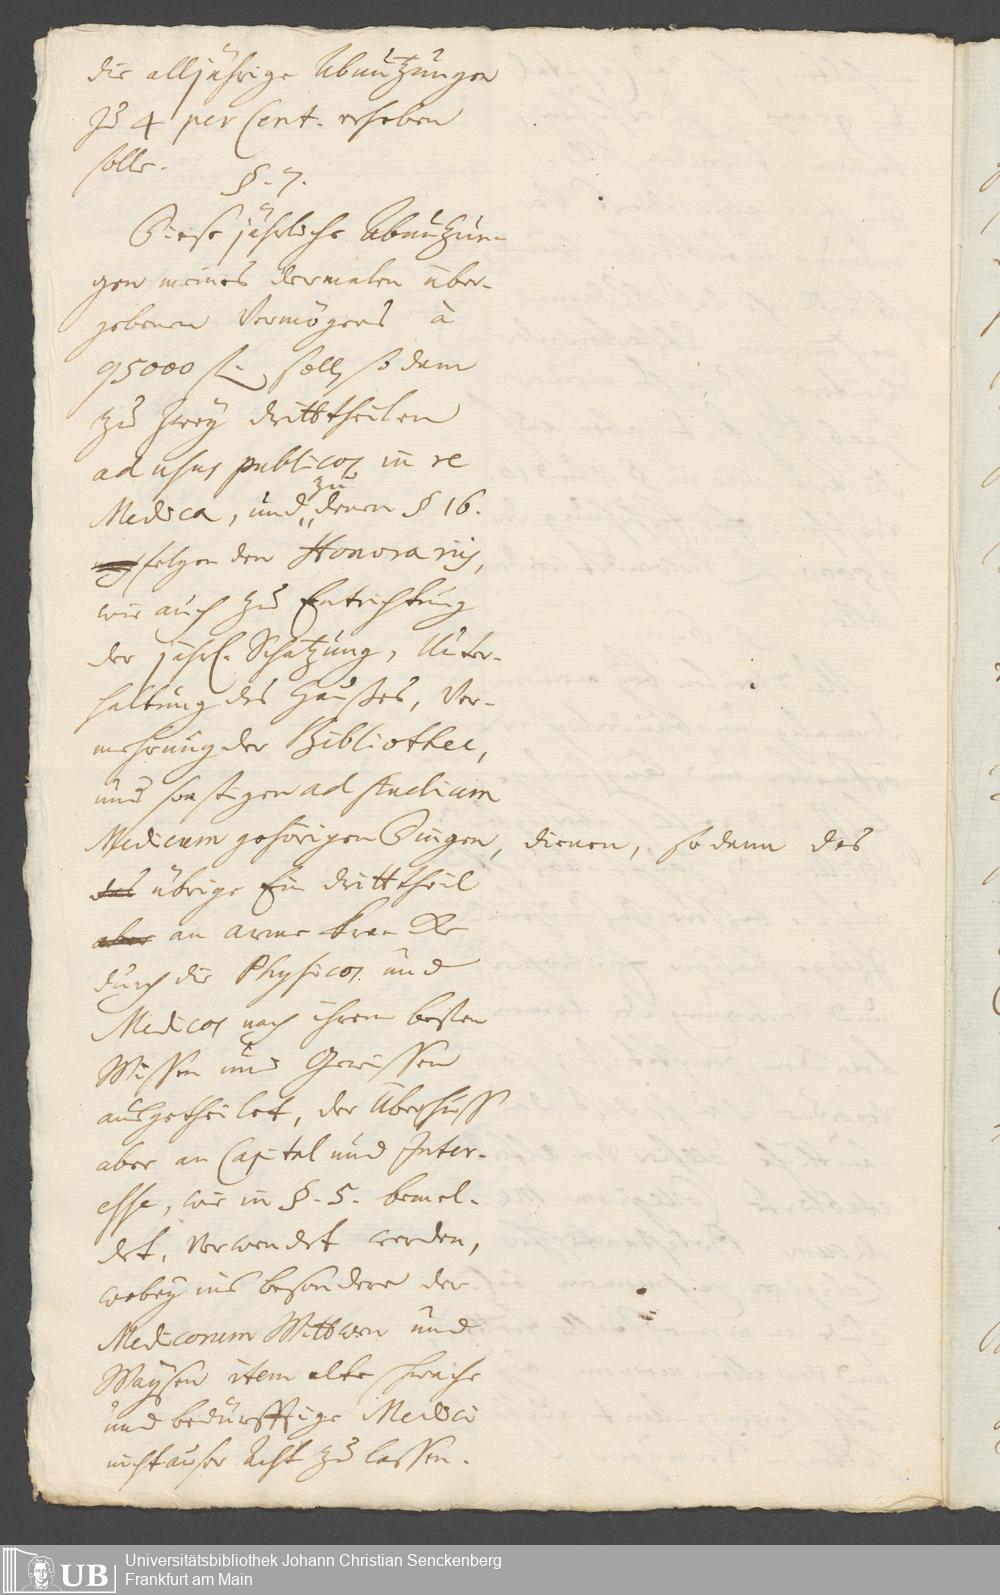 die alljährige Abnutzungen
zu 4 per Cent. erheben
solle.
§. 7.
Diese jährliche Abnutzun-
gen meines dermalen über-
gebenen Vermögens à
95000 fl. soll, so dann
zu zwey dritttheilen
ad usus publicos in re
Medica, und zu denen § 16.
folgenden Honorariis,
wie auch zu Entrichtung
der jährl. Schatzung, Unter-
haltung des Haußes, Ver-
mehrung der Bibliothec,
und sonstigen ad studium
Medicum gehörigen Dingen, dienen, so dann das
das übrige Ein dritttheil
aber an arme Krancke
durch die Physicos und
Medicos nach ihrem besten
Wissen und Gewissen
ausgetheilet, der Überschuss
aber an Capital und Inter-
esse, wie in §. 5. bemel-
det, verwendet werden,
wobey ins besondere der
Medicorum Wittwen und
Waysen item alte schwache
und bedürfftige Medici
nicht auser Acht zu lassen.
UB
Universitätsbibliothek Johann Christian Senckenberg
Frankfurt am Main